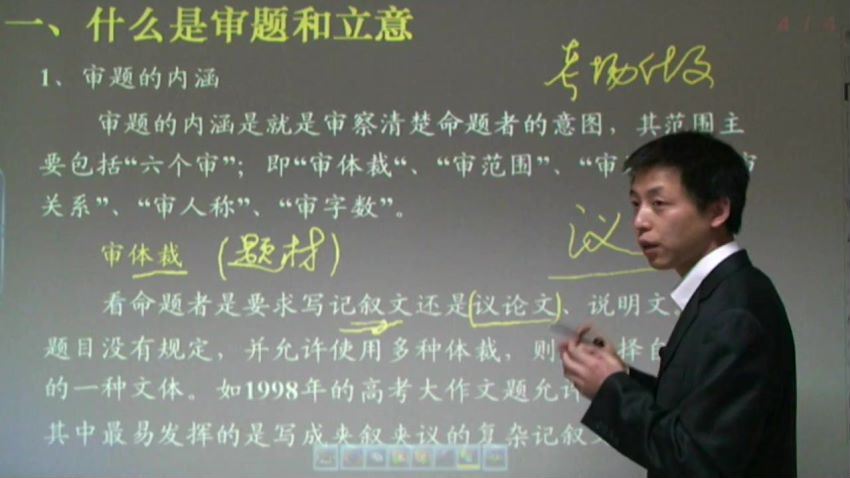 一、什么是审题和立意
4/4
考场作文
1、审题的内涵
审题的内涵是就是审察清楚命题者的意图，其范围主
要包括“六个审”；即“审体裁“、“审范围”、“审
关系”、“审人称”、“审字数”。
议
审体裁 (题材)
看命题者是要求写记叙文还是(议论文)、说明文、
题目没有规定，并允许使用多种体裁，则 择自
的一种文体。如1998年的高考大作文题允许
其中最易发挥的是写成夹叙夹议的复杂记叙文